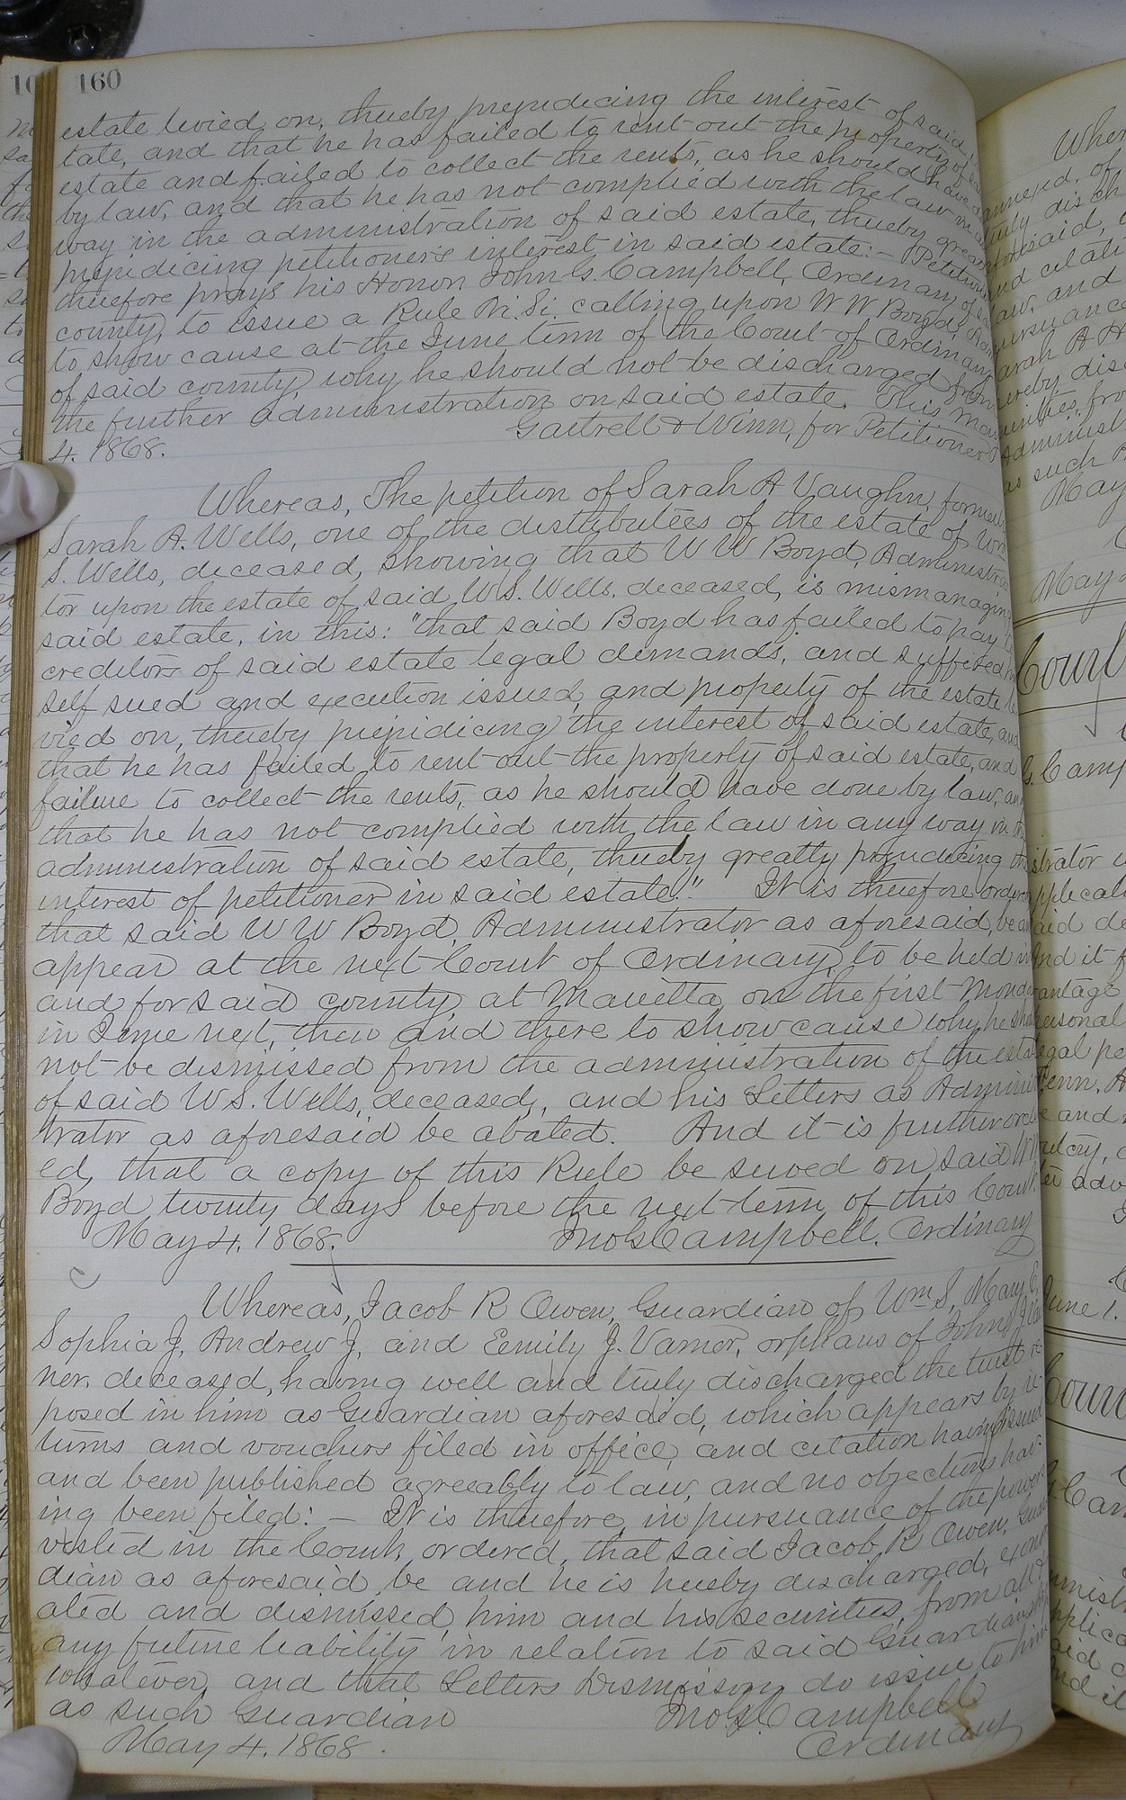 160
estate levied on, thereby prejudicing the interest of said
tate, and that he has failed to rent out the property of
estate and failed to collect the rents, as he should have
by law, and that he has not complied with the law in
way in the administration of said estate, thereby
prejidicing petitioner's interest in said estate:- Petitioner
therefore prays his Honor John G. Campbell, Ordinary of
county, to issue a Rule Ni. Si. calling upon W W Boyd,
to show cause at the June term of the Court of Ordinary
of said county, why he should not be discharged from
the further administration on said estate. This May
4. 1868.
Gartrell & Winn, for Petitioner
Whereas, The petition of Sarah A Vaughn, formerly
Sarah A. Wells, one of the distributees of the estate of Wm
S. Wells, deceased, showing that W W Boyd, Administra
tor upon the estate of said W.S. Wells, deceased, is mismanaging
said estate, in this: "that said Boyd has failed to pay
creditors of said estate legal demands, and suffered
self sued and execution issued, and property of the estate le
vied on, thereby prejidicing the interest of said estate, and
that he has failed to rent out the property of said estate, and
failure to collect the rents, as he should have done by law, and
that he has not complied with the law in any way in the
administration of said estate, thereby greatly prejudicing the
interest of petitioner in said estate." It is therefore ordered
that said W W Boyd, Administrator as aforesaid, be and
appear at the next Court of Ordinary, to be held in
and for said county, at Marietta, on the first Monday
in June next, then and there to show cause why he should
not be dismissed from the administration of the estate
of said W.S. Wells, deceased, and his Letters as Adminis
trator as aforesaid be abated. And it is further order
ed, that a copy of this Rule be served on said W W
Boyd twenty days before the next term of this Court.
May 4. 1868.
Jno G. Campbell. Ordinary
Whereas, Jacob R Owen, Guardian of Wm S, Mary E,
Sophia J, Andrew J, and Eemily J. Varner, orphans of John J Var
ner, deceased, having well and truly discharged the trust re
posed in him as Guardian aforesaid, which appears by re
turns and vouchers filed in office, and citation having issued
and been published agreeably to law, and no objections hav
ing been filed: - It is therefore, in pursuance of the power
vested in the Court, ordered, that said Jacob R Owen, Guar
dian as aforesaid, be and he is hereby discharged, exoner
ated and dismissed, him and his securities, from all &
any future liability in relation to said Guardianship
whatever, and that Letters Dismissory do issue to him
as such Guardian
May 4. 1868.
Jno. G. Campbell
Ordinary